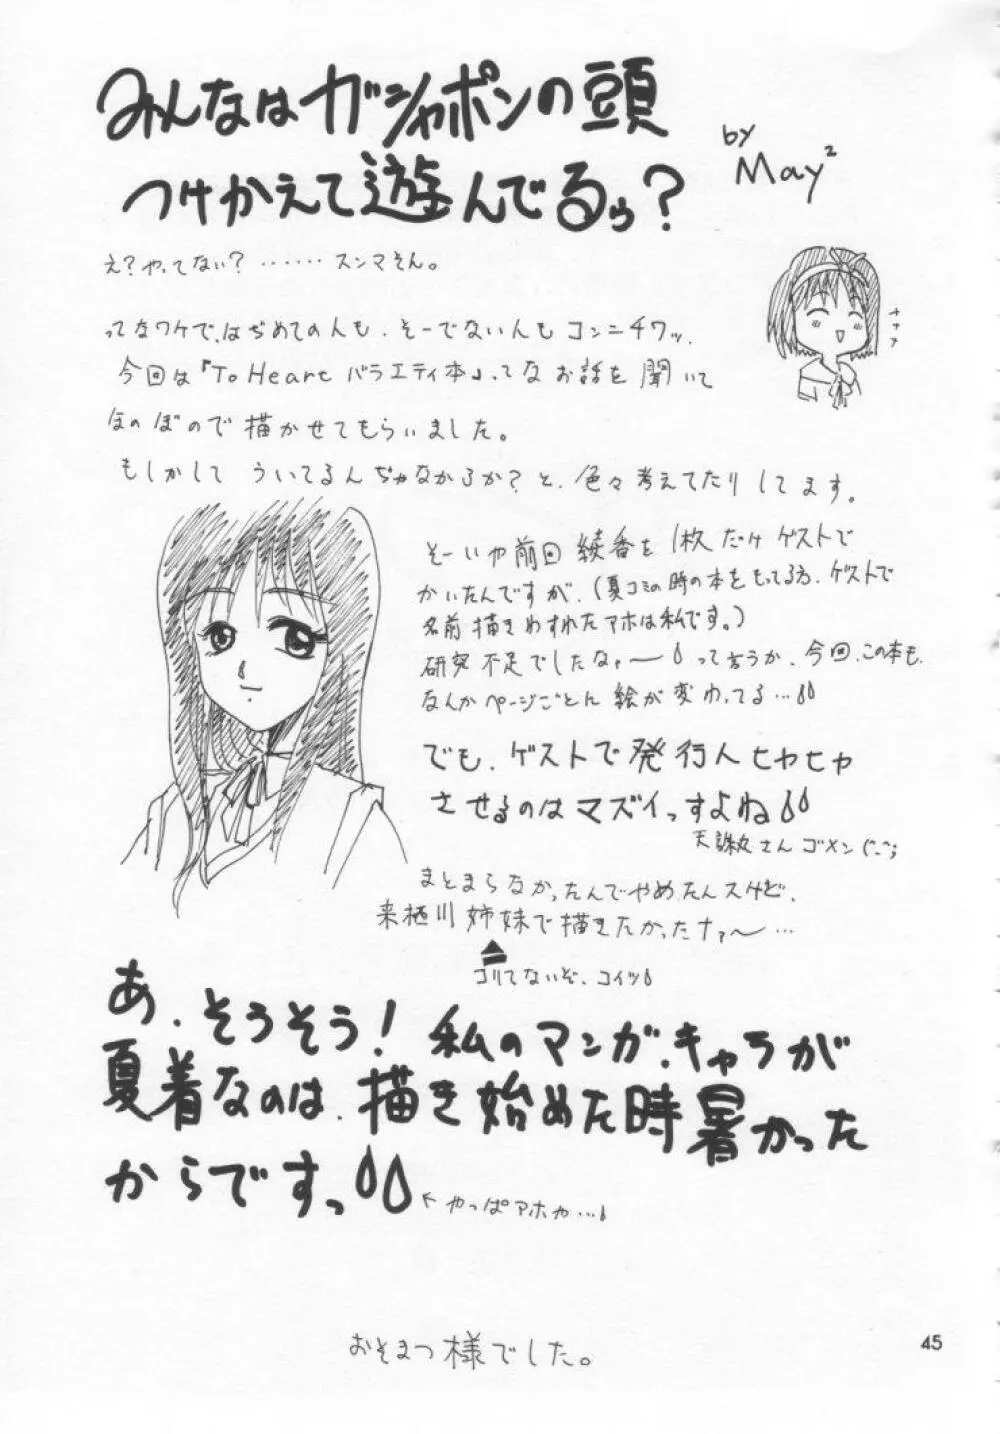 みんなはガシャポンの頭
つけかえて遊んでるぅ?
by May²
え?やってない?‥‥‥スンマそん。
ってなワケで、はぢめての人も、そーでない人もコンニチワッ。
今回は『To Heart バラエティ本』ってなお話を聞いて
ほのぼので描かせてもらいました。
もしかして ういてるんぢゃなかろか?と、色々考えてたりしてます。
そーいや前回 綾香を1枚だけゲストで
かいたんですが、(夏コミの時の本をもってる方、ゲストで
名前描きわすれたアホは私です。)
研究不足でしたなァ〜 って言うか、今回、この本も、
なんかページごとに絵が変わってる…
でも、ゲストで発行人ヒヤヒヤ
させるのはマズイっすよね
天誅丸さんゴメン(^_^;
まとまらなかったんでやめたんスけど、
来栖川姉妹で描きたかったナァ〜…
コリてないぞ、コイツ
あ、そうそう!私のマンガ、キャラが
夏着なのは、描き始めた時暑かった
からですっ
←やっぱアホか…
おそまつ様でした。
45